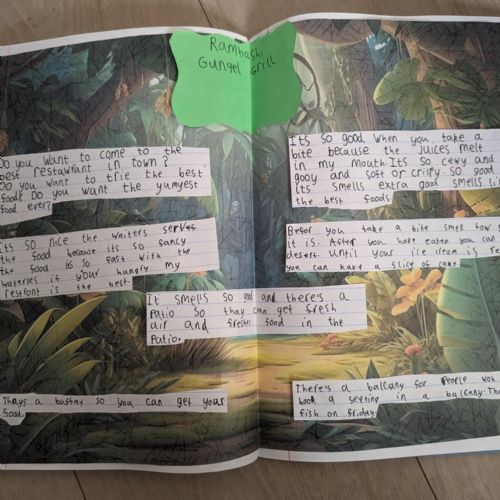 Rambashi
Gungel Grill
Do you want to come to the
best restawrant in town?
Do you want to trie the best
food? Do you want the yumyest
food ever?
Its so nice the waiters serves
the food because its so fancy
the food its so fast with the
waterses if your hungry my
restront is the best.
It smells so good and there's a
Patio so thay can get fresh
air and fresher food in the
Patio.
Thays a buffay so you can get your
food.
It's so good when you take a
bite because the juices melt
in my mouth. It's so cewy and
gooy and soft or crispy. So good
its smells extra good smells
the best foods
Befor you take a bite smell how
it is. After you have eaten you can
desert. Until your ice dream is
you can have a slice of cake.
There's a balcany for people
book a seeting in a balcany.
fish on friday